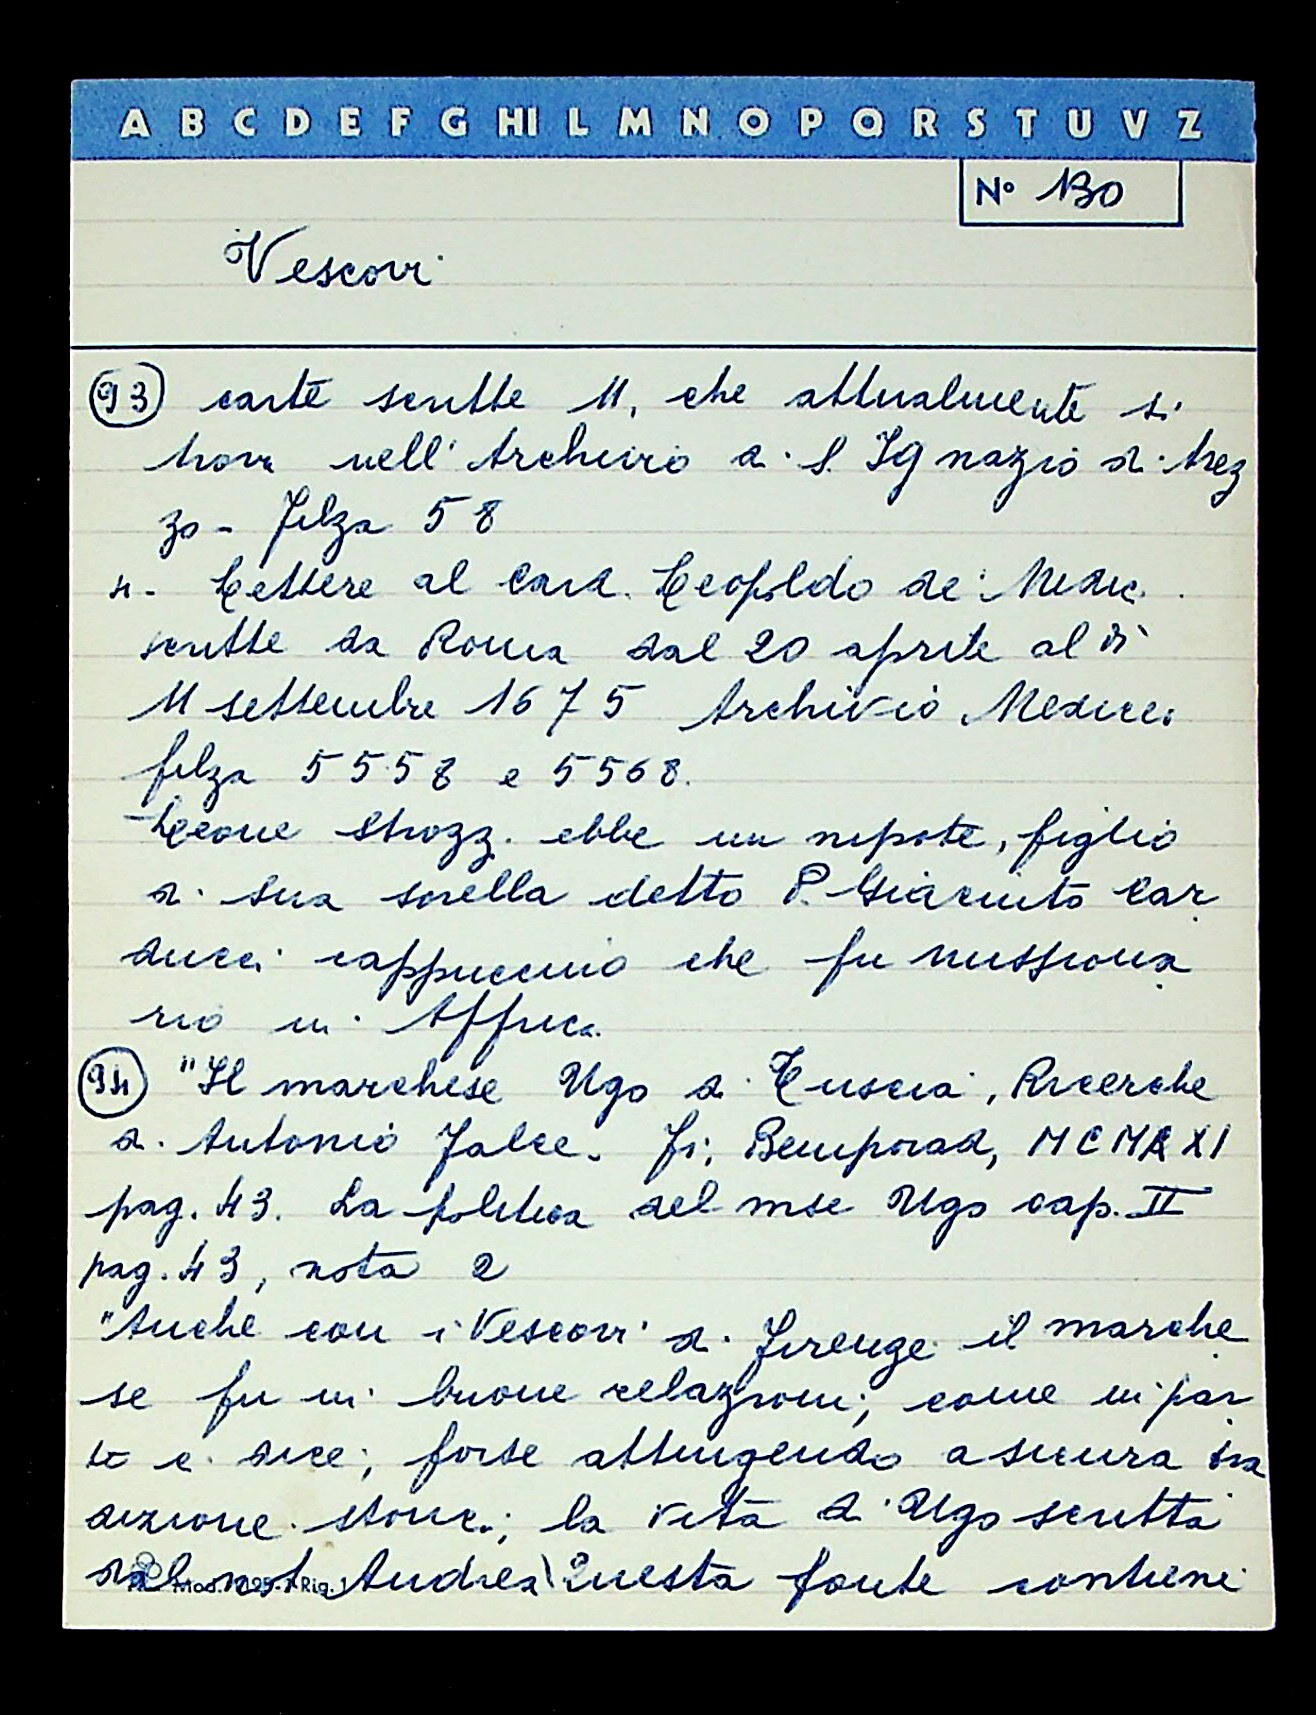 A B C D E F G HI L M N O P Q R S T U V Z
N° 130
Vescovi
93 carte scritte 11, che attualmente si
trova nell'Archivio di S. IGnazio di Arez
zo - filza 58
4- Lettere al Card. Leopoldo de' Medici
scritte da Roma dal 20 aprile al dì
11 settembre 1675 Archivio Mediceo
filza 5558 e 5568.
- Leone Strozzi ebbe un nipote, figlio
di sua sorella detto P. Giacinto Car
ducci cappuccino che fu missiona
rio in Affrica.
94 "Il marchese Ugo di Tuscia, Ricerche
di Antonio Falce. Fi, Bemporad, MCMXXI
pag. 43. La politica del mse Ugo cap. II
pag. 43, nota 2
"Anche con i Vescovi di Firenze il marche
se fu in buone relazioni; come in par
te ci dice; forse attingendo a sicura tra
dizione storica; la vita di Ugo scritta
dal Andrea\Questa fonte contiene
Rig. 1